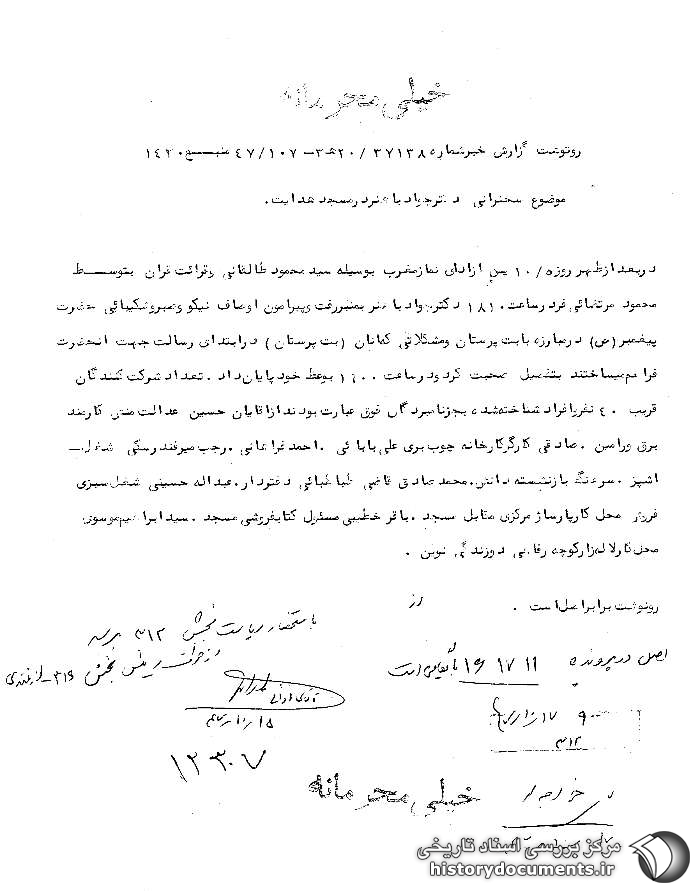 خیلی محرمانه
رونوشت گزارش خبر شماره ۳۷۱۳۸ / ۲۰ه۳ – ۴۷/۱۰۷ منبع ۱۴۳۰
موضوع سخنرانی دکتر جواد باهنر در مسجد هدایت.
در بعد از ظهر روز ۱۰/ پس از ادای نماز مغرب بوسیله سید محمود طالقانی و قرائت قران بتوسط
محمود مرتضائی فرد ساعت دکتر جواد باهنر بمنبر رفت و پیرامون اوصاف نیکو و صبر و شکیبائی حضرت
پیغمبر (ص) در مبارزه با بت پرستان و مشکلاتی که آنان (بت پرستان) در ابتدای رسالت جهت انحضرت
فراهم میساختند بتفصیل صحبت کرد و در ساعت بوعظ خود پایان داد. تعداد شرکت کنندگان
قریب ۴۰ نفر و افراد شناخته شده بجز نامبردگان فوق عبارت بودند از اقایان حسین عدالت منش کارمند
برق ورامین. صادقی کارگر کارخانه چوب بری علی بابائی. احمد رجب شغل
اشپز. سرهنگ بازنشسته دانش. محمد صادق قاضی طباطبائی دفتردار. عبداله حسینی شغل سبزی
فروش محل کار پاساژ مرکزی مقابل مسجد. باقر خطیبی مسئول کتابفروشی مسجد. سید ابراهیم موسوی
محل کار لاله زار کوچه رفاهی دوزندگی نوین.
رونوشت برابر اصل است.
باستحضار ریاست بخش ۳۱۲ برسد
اصل در پرونده ۱۱ ۱۷ ۱۶ بایگانی است
۳۱۲
۱۲۳۰۷
خیلی محرمانه
مرکز بررسی اسناد تاریخی
historydocuments.ir